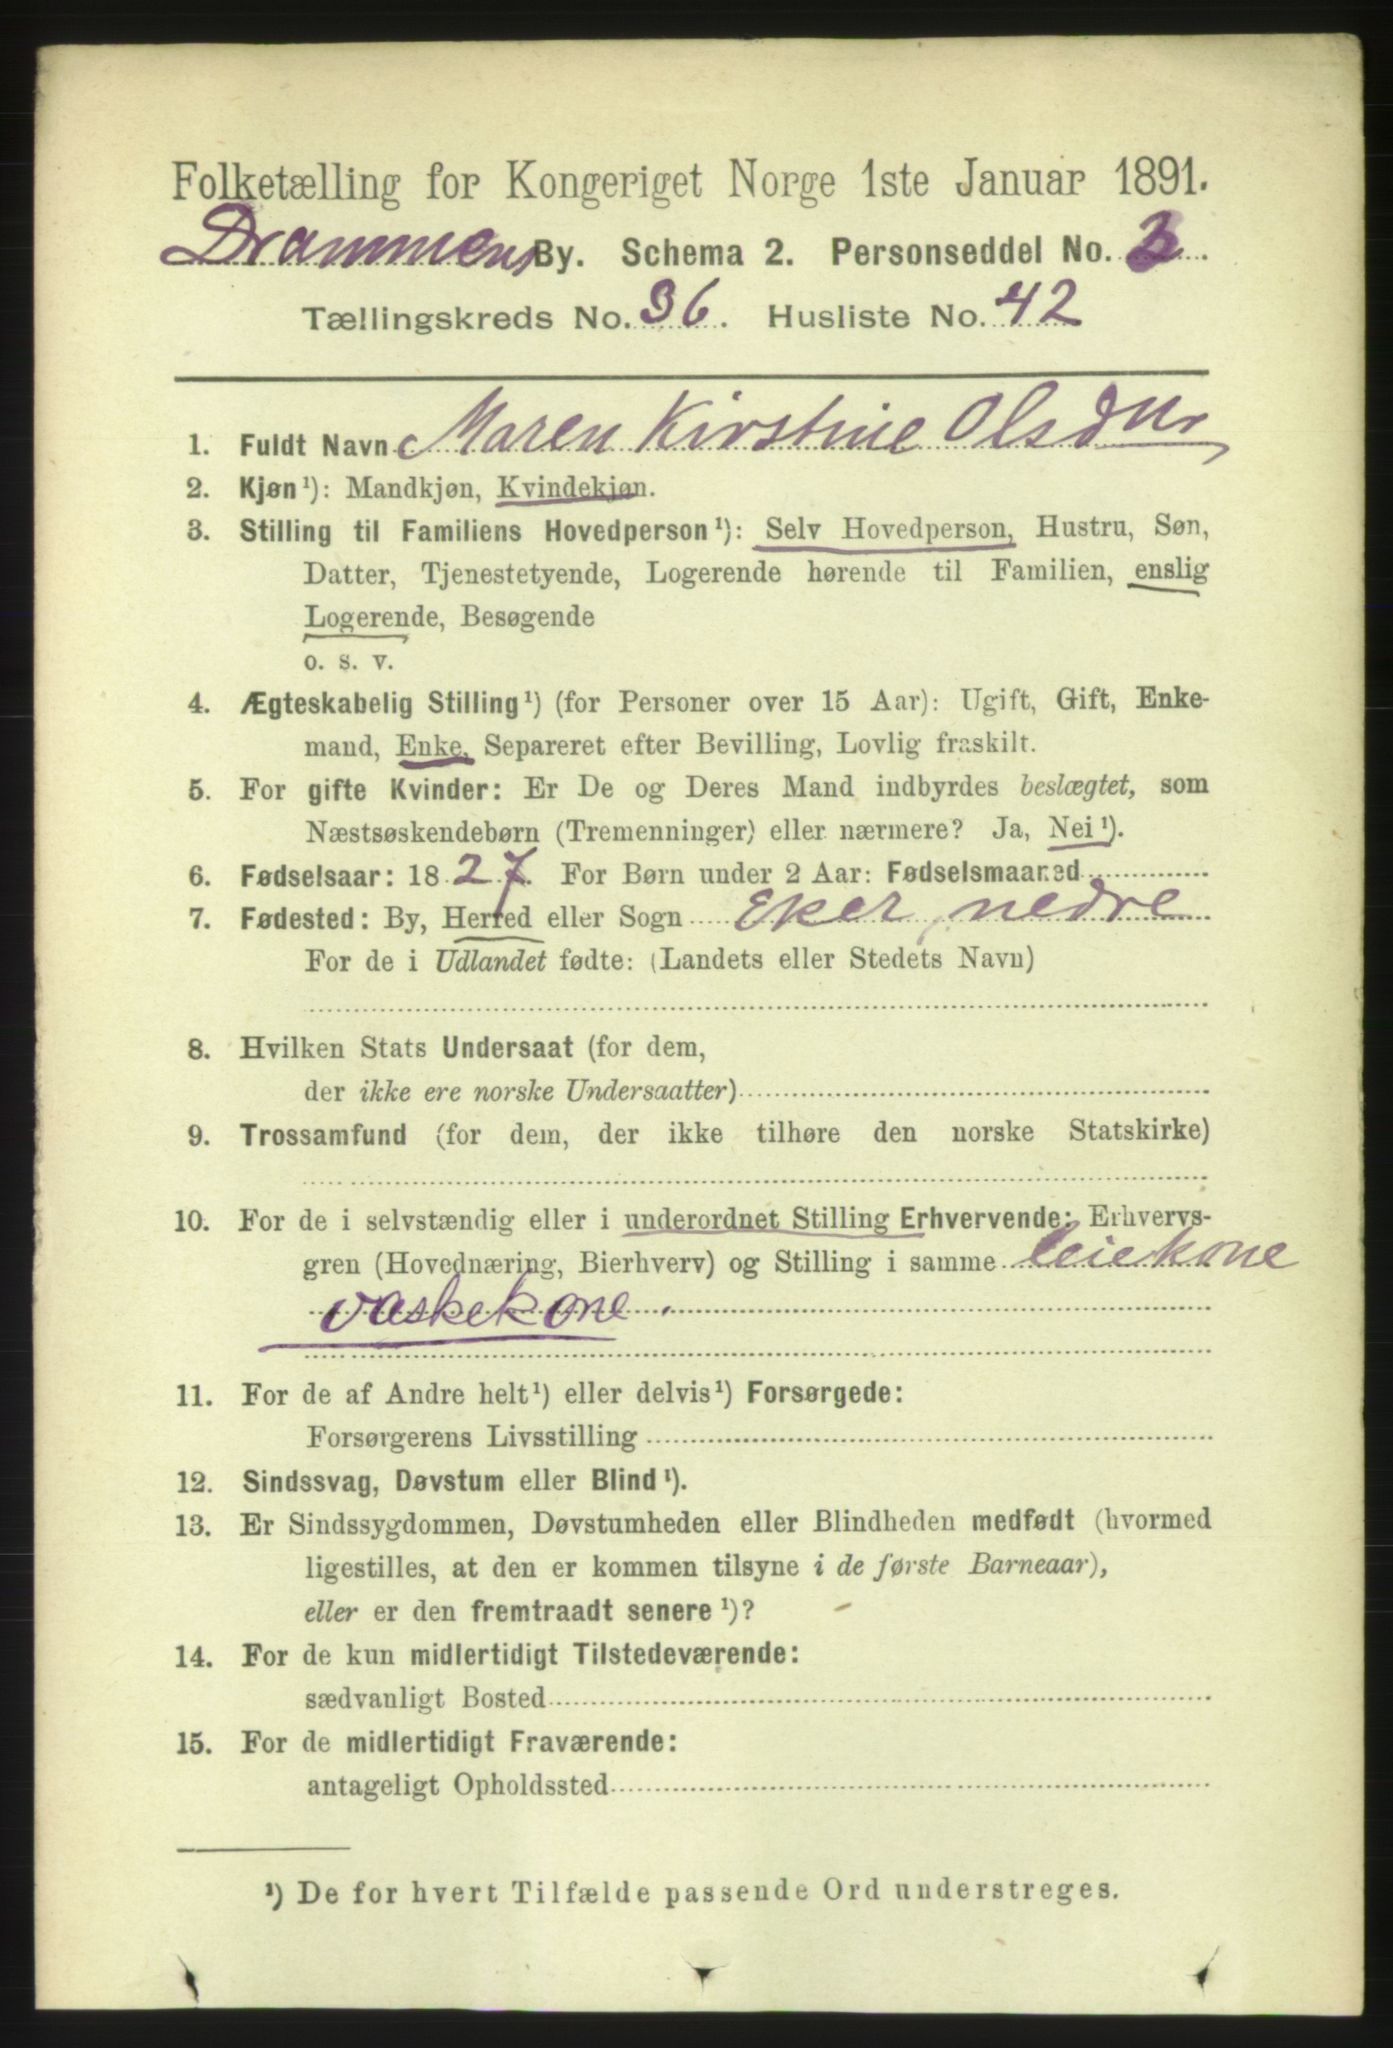 Folketælling for Kongeriget Norge 1ste Januar 1891.
Drammens By. Schema 2. Personseddel No. 3.
Tællingskreds No. 36. Husliste No. 42
1. Fuldt Navn Maren Kirstine Olsdttr
2. Kjøn¹): Mandkjøn, Kvindekjøn.
3. Stilling til Familiens Hovedperson¹): Selv Hovedperson, Hustru, Søn,
Datter, Tjenestetyende, Logerende hørende til Familien, enslig
Logerende, Besøgende
o. s. v.
4. Ægteskabelig Stilling¹) (for Personer over 15 Aar): Ugift, Gift, Enke-
mand, Enke, Separeret efter Bevilling, Lovlig fraskilt.
5. For gifte Kvinder: Er De og Deres Mand indbyrdes beslægtet, som
Næstsøskendebørn (Tremenninger) eller nærmere? Ja, Nei¹).
6. Fødselsaar: 1827. For Børn under 2 Aar: Fødselsmaaned
7. Fødested: By, Herred eller Sogn Eker, nedre
For de i Udlandet fødte: (Landets eller Stedets Navn)
8. Hvilken Stats Undersaat (for dem,
der ikke ere norske Undersaatter)
9. Trossamfund (for dem, der ikke tilhøre den norske Statskirke)
10. For de i selvstændig eller i underordnet Stilling Erhvervende: Erhvervs-
gren (Hovednæring, Bierhverv) og Stilling i samme leiekone
vaskekone.
11. For de af Andre helt¹) eller delvis¹) Forsørgede:
Forsørgerens Livsstilling
12. Sindssvag, Døvstum eller Blind¹).
13. Er Sindssygdommen, Døvstumheden eller Blindheden medfødt (hvormed
ligestilles, at den er kommen tilsyne i de første Barneaar),
eller er den fremtraadt senere¹)?
14. For de kun midlertidigt Tilstedeværende:
sædvanligt Bosted
15. For de midlertidigt Fraværende:
antageligt Opholdssted
¹) De for hvert Tilfælde passende Ord understreges.